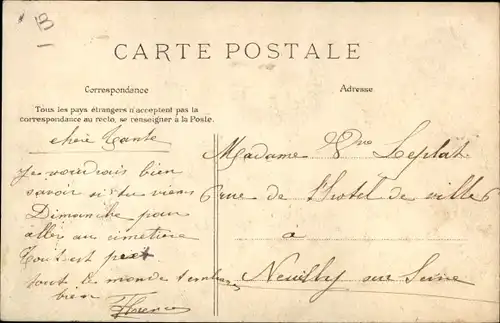 CARTE POSTALE
Correspondance
Adresse
Tous les pays étrangers n'acceptent pas la
correspondance au recto, se renseigner à la Poste.
chère Tante
Je voudrais bien
savoir si tu viens
Dimanche pour
aller au cimetière
Tout est
tout le monde t'embrasse
bien
Florence
Madame Vve Leplat
6 rue de l'hotel de ville 6
à
Neuilly sur Seine